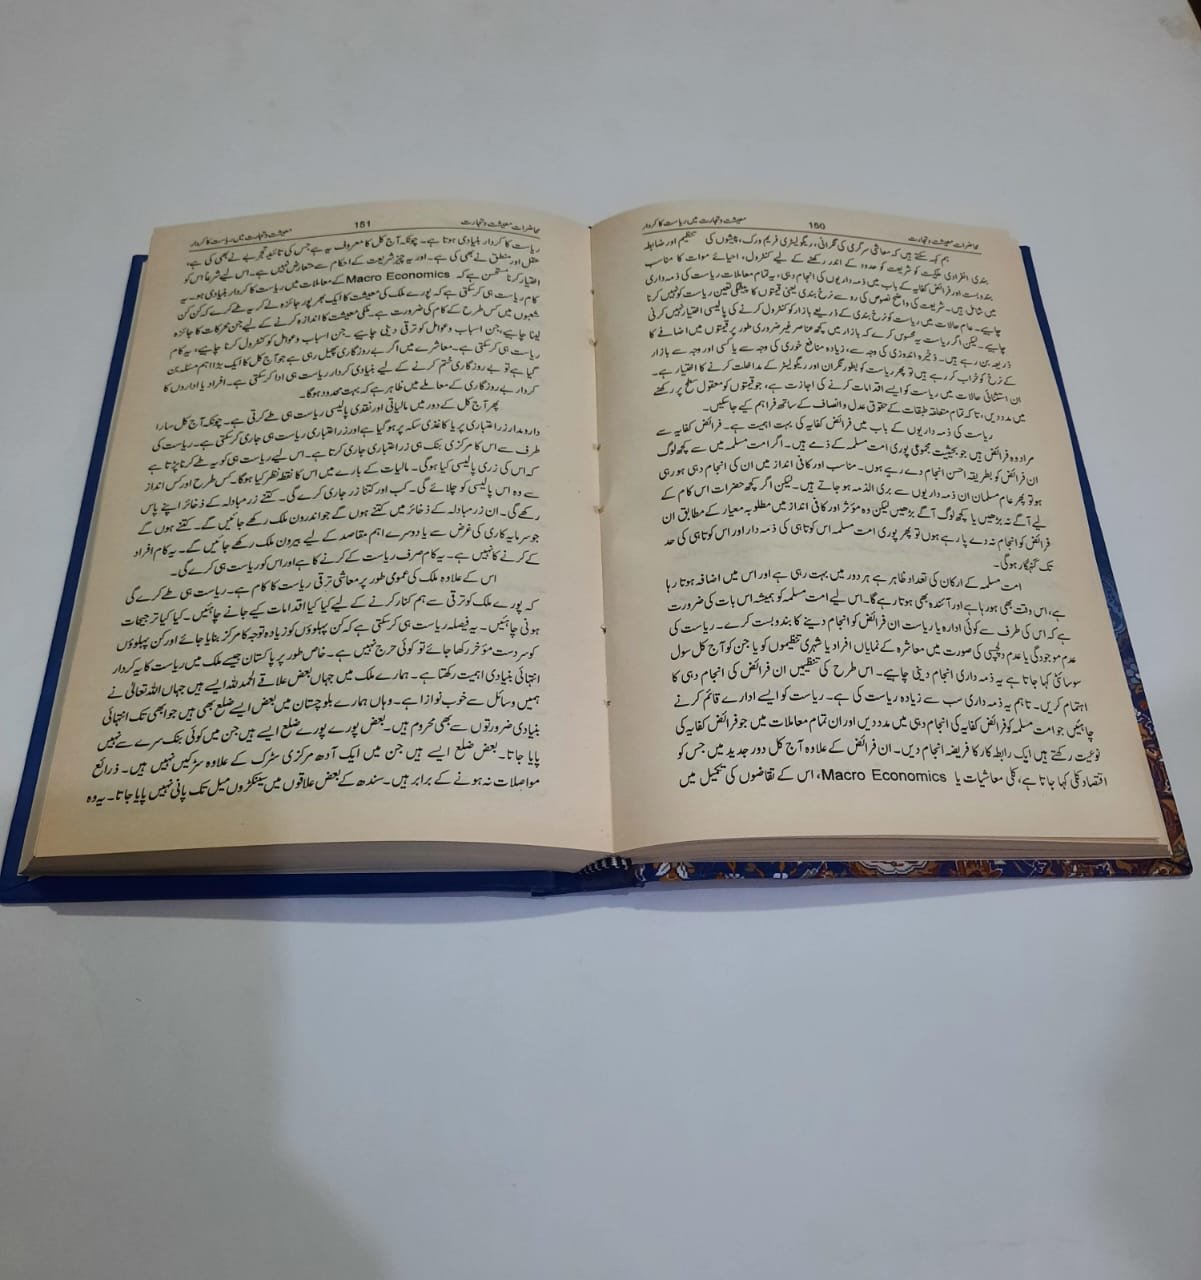 محاضرات معیشت و تجارت 160 معیشت و تجارت میں ریاست کا کردار
ہم کہہ سکتے ہیں کہ معاشی سرگرمی کی نگرانی، ریگولیٹری فریم ورک، پیشوں کی تنظیم اور ضابطہ
بندی انفرادی ملکیت کو شریعت کو حدود کے اندر رکھنے کے لیے کنٹرول، احیائے موات کا مناسب
بندوبست اور فرائض کفایہ کے باب میں ذمہ داریوں کی انجام دہی، یہ تمام معاملات ریاست کی ذمہ داری
میں شامل ہیں۔ شریعت کی واضح نصوص کی رو سے نرخ بندی یعنی قیمتوں کا پیشگی تعین ریاست کو نہیں کرنا
چاہیے۔ عام حالات میں ریاست کو نرخ بندی کے ذریعے بازار کو کنٹرول کرنے کی پالیسی اختیار نہیں کرنی
چاہیے۔ لیکن اگر ریاست یہ محسوس کرے کہ بازار میں کچھ عناصر غیر ضروری طور پر قیمتوں میں اضافے کا
ذریعہ بن رہے ہیں۔ ذخیرہ اندوزی کی وجہ سے، زیادہ منافع خوری کی وجہ سے یا کسی اور وجہ سے بازار
کے نرخ کو خراب کر رہے ہیں تو پھر ریاست کو بطور نگران اور ریگولیٹر کے مداخلت کرنے کا اختیار ہے۔
ان استثنائی حالات میں ریاست کو ایسے اقدامات کرنے کی اجازت ہے، جو قیمتوں کو معقول سطح پر رکھنے
میں مدد دیں، تاکہ تمام متعلقہ طبقات کے حقوق عدل و انصاف کے ساتھ فراہم کیے جاسکیں۔
ریاست کی ذمہ داریوں کے باب میں فرائض کفایہ کی بہت اہمیت ہے۔ فرائض کفایہ سے
مراد وہ فرائض ہیں جو بحیثیت مجموعی پوری امت مسلمہ کے ذمے ہیں۔ اگر امت مسلمہ میں سے کچھ لوگ
ان فرائض کو بطریقہ احسن انجام دے رہے ہوں۔ مناسب اور کافی انداز میں ان کی انجام دہی ہو رہی
ہو تو پھر عام مسلمان ان ذمہ داریوں سے بری الذمہ ہو جاتے ہیں۔ لیکن اگر کچھ حضرات اس کام کے
لیے آگے نہ بڑھیں یا کچھ لوگ آگے بڑھیں لیکن وہ مؤثر اور کافی انداز میں مطلوبہ معیار کے مطابق ان
فرائض کو انجام نہ دے پا رہے ہوں تو پھر پوری امت مسلمہ اس کوتاہی کی ذمہ دار اور اس کوتاہی کی حد
تک گنہگار ہوگی۔
امت مسلمہ کے ارکان کی تعداد ظاہر ہے ہر دور میں بہت رہی ہے اور اس میں اضافہ ہوتا رہا
ہے، اس وقت بھی ہو رہا ہے اور آئندہ بھی ہوتا رہے گا۔ اس لیے امت مسلمہ کو ہمیشہ اس بات کی ضرورت
ہے کہ اس کی طرف سے کوئی ادارہ یا ریاست ان فرائض کو انجام دینے کا بندوبست کرے۔ ریاست کی
عدم موجودگی یا عدم دلچسپی کی صورت میں معاشرہ کے نمایاں افراد یا شہری تنظیموں کو یا جن کو آج کل سول
سوسائٹی کہا جاتا ہے یہ ذمہ داری انجام دینی چاہیے۔ اس طرح کی تنظیمیں ان فرائض کی انجام دہی کا
اہتمام کریں۔ تاہم یہ ذمہ داری سب سے زیادہ ریاست کی ہے۔ ریاست کو ایسے ادارے قائم کرنے
چاہئیں جو امت مسلمہ کو فرائض کفایہ کی انجام دہی میں مدد دیں اور ان تمام معاملات میں جو فرائض کفایہ کی
نوعیت رکھتے ہیں ایک رابطہ کار کا فریضہ انجام دیں۔ ان فرائض کے علاوہ آج کل دور جدید میں جس کو
اقتصاد کلی کہا جاتا ہے، کلی معاشیات یا Macro Economics، اس کے تقاضوں کی تکمیل میں
محاضرات معیشت و تجارت 161 معیشت و تجارت میں ریاست کا کردار
ریاست کا کردار بنیادی ہوتا ہے۔ چونکہ آج کل کا معروف یہ ہے جس کی تائید تجربے نے بھی کی ہے،
عقل اور منطق نے بھی کی ہے۔ اور یہ چیز شریعت کے احکام سے متعارض نہیں ہے۔ اس لیے شرعاً اس کو
اختیار کرنا مستحسن ہے کہ Macro Economics کے معاملات میں ریاست کا کردار بنیادی ہو۔ یہ
کام ریاست ہی کر سکتی ہے کہ پورے ملک کی معیشت کا ایک بھرپور جائزہ لے کر یہ طے کرے کہ کن کن
شعبوں میں کس طرح کے کام کی ضرورت ہے۔ ملکی معیشت کا اندازہ کرنے کے لیے جن محرکات کا جائزہ
لینا چاہیے، جن اسباب و عوامل کو ترقی دینی چاہیے۔ جن اسباب و عوامل کو کنٹرول کرنا چاہیے، یہ کام
ریاست ہی کر سکتی ہے۔ معاشرے میں اگر بے روزگاری پھیل رہی ہے جو آج کل کا ایک بڑا اہم مسئلہ بن
گیا ہے تو بے روزگاری ختم کرنے کے لیے بنیادی کردار ریاست ہی ادا کر سکتی ہے۔ افراد یا اداروں کا
کردار بے روزگاری کے معاملے میں ظاہر ہے کہ بہت محدود ہوگا۔
پھر آج کل کے دور میں مالیاتی اور نقدی پالیسی ریاست ہی طے کرتی ہے۔ چونکہ آج کل سارا
دارومدار زر اعتباری پر یا کاغذی سکہ پر ہو گیا ہے اور زر اعتباری ریاست ہی جاری کر سکتی ہے۔ ریاست کی
طرف سے اس کا مرکزی بنک ہی زر اعتباری جاری کرتا ہے۔ اس لیے ریاست ہی کو یہ طے کرنا پڑتا ہے
کہ اس کی زری پالیسی کیا ہوگی۔ مالیات کے بارے میں اس کا نقطہ نظر کیا ہوگا۔ کس طرح اور کس انداز
سے وہ اس پالیسی کو چلائے گی۔ کب اور کتنا زر جاری کرے گی۔ کتنے زر مبادلہ کے ذخائر اپنے پاس
رکھے گی۔ ان زر مبادلہ کے ذخائر میں کتنے ہوں گے جو اندرون ملک رکھے جائیں گے۔ کتنے ہوں گے
جو سرمایہ کاری کی غرض سے یا دوسرے اہم مقاصد کے لیے بیرون ملک رکھے جائیں گے۔ یہ کام افراد
کے کرنے کا نہیں ہے۔ یہ کام صرف ریاست کے کرنے کا ہے اور اس کو ریاست ہی کرے گی۔
اس کے علاوہ ملک کی عمومی طور پر معاشی ترقی ریاست کا کام ہے۔ ریاست ہی طے کرے گی
کہ پورے ملک کو ترقی سے ہم کنار کرنے کے لیے کیا کیا اقدامات کیے جانے چاہئیں۔ کیا کیا ترجیحات
ہونی چاہئیں۔ یہ فیصلہ ریاست ہی کر سکتی ہے کہ کن پہلوؤں کو زیادہ توجہ کا مرکز بنایا جائے اور کن پہلوؤں
کو سردست مؤخر رکھا جائے تو کوئی حرج نہیں ہے۔ خاص طور پر پاکستان جیسے ملک میں ریاست کا یہ کردار
انتہائی بنیادی اہمیت رکھتا ہے۔ ہمارے ملک میں جہاں بعض علاقے الحمدللہ ایسے ہیں جہاں اللہ تعالیٰ نے
ہمیں وسائل سے خوب نوازا ہے۔ وہاں ہمارے بلوچستان میں بعض ایسے ضلع بھی ہیں جو ابھی تک انتہائی
بنیادی ضرورتوں سے بھی محروم ہیں۔ بعض پورے پورے ضلع ایسے ہیں جن میں کوئی بنک سرے سے نہیں
پایا جاتا۔ بعض ضلع ایسے ہیں جن میں ایک آدھ مرکزی سڑک کے علاوہ سڑکیں نہیں ہیں۔ ذرائع
مواصلات نہ ہونے کے برابر ہیں۔ سندھ کے بعض علاقوں میں سینکڑوں میل تک پانی نہیں پایا جاتا۔ یہ وہ